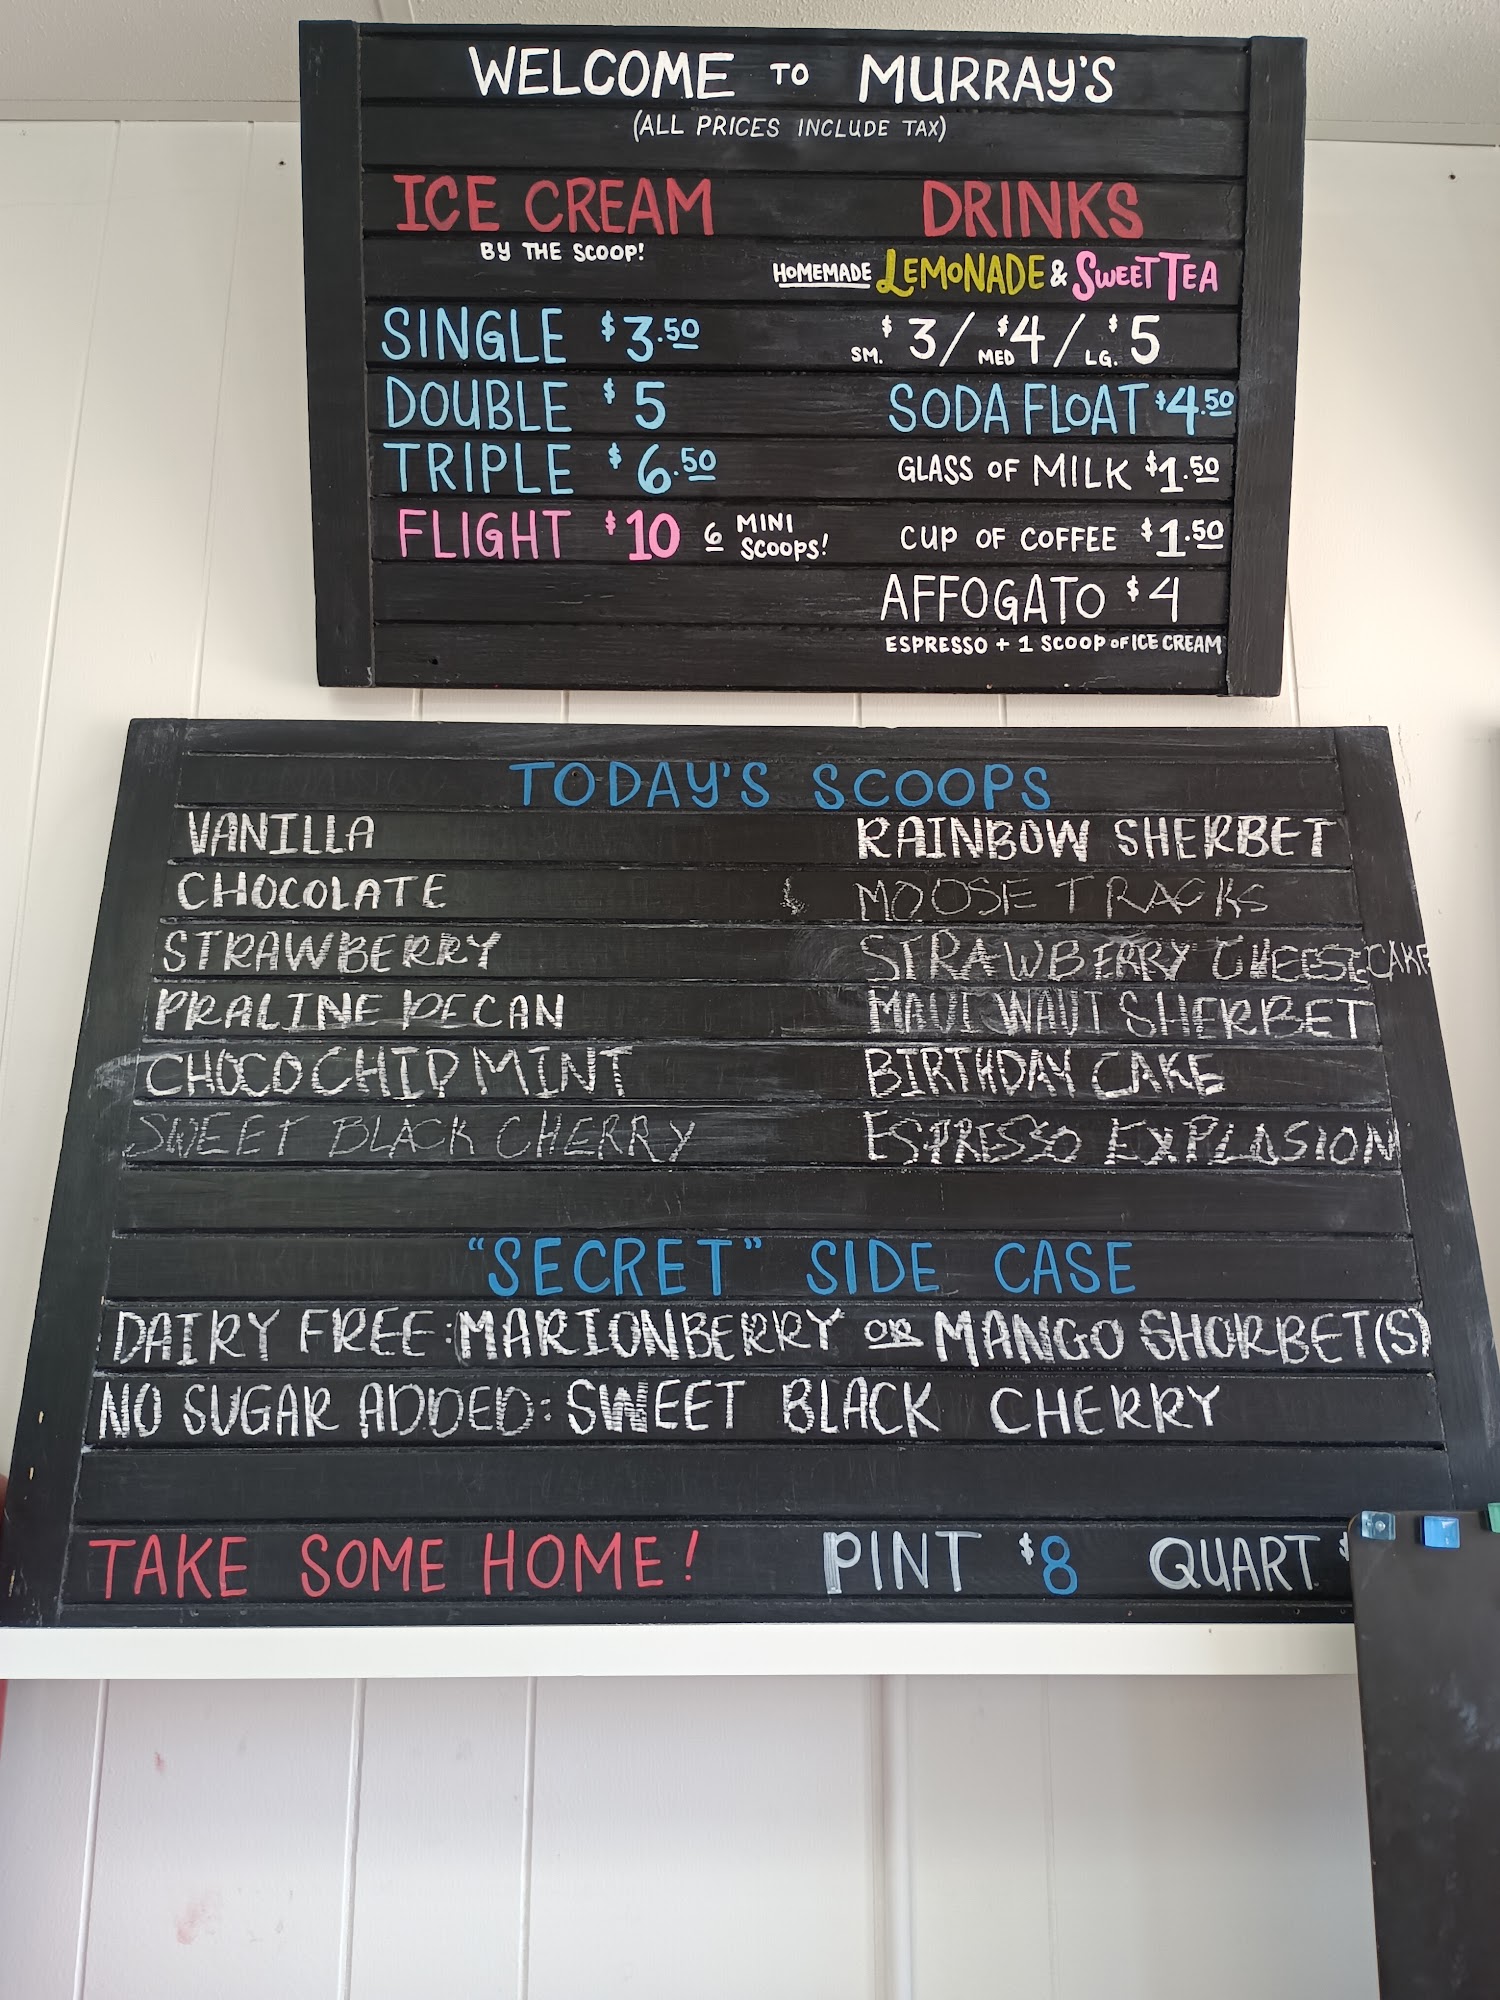 WELCOME TO MURRAY'S
(ALL PRICES INCLUDE TAX)
ICE CREAM
BY THE SCOOP!
SINGLE $3.50
DOUBLE $5
TRIPLE $6.50
FLIGHT $10 6 MINI SCOOPS!
DRINKS
HOMEMADE LEMONADE & SWEET TEA
SM. $3 / MED $4 / LG. $5
SODA FLOAT $4.50
GLASS OF MILK $1.50
CUP OF COFFEE $1.50
AFFOGATO $4
ESPRESSO + 1 SCOOP OF ICE CREAM
TODAY'S SCOOPS
VANILLA
CHOCOLATE
STRAWBERRY
PRALINE PECAN
CHOCO CHIP MINT
SWEET BLACK CHERRY
RAINBOW SHERBET
MOOSE TRACKS
STRAWBERRY CHEESECAKE
MAUI WAUI SHERBET
BIRTHDAY CAKE
ESPRESSO EXPLOSION
"SECRET" SIDE CASE
DAIRY FREE: MARIONBERRY OR MANGO SHORBET(S)
NO SUGAR ADDED: SWEET BLACK CHERRY
TAKE SOME HOME! PINT $8 QUART $